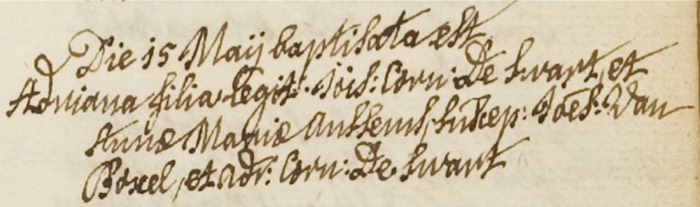 Die 15 Maÿ baptisata est
Adriana filia legit: Jois: Corn: De Swart, et
Annæ Mariæ Anssems, suscep: Joês: Van
Boxel, et Adr: Corn: De Swart